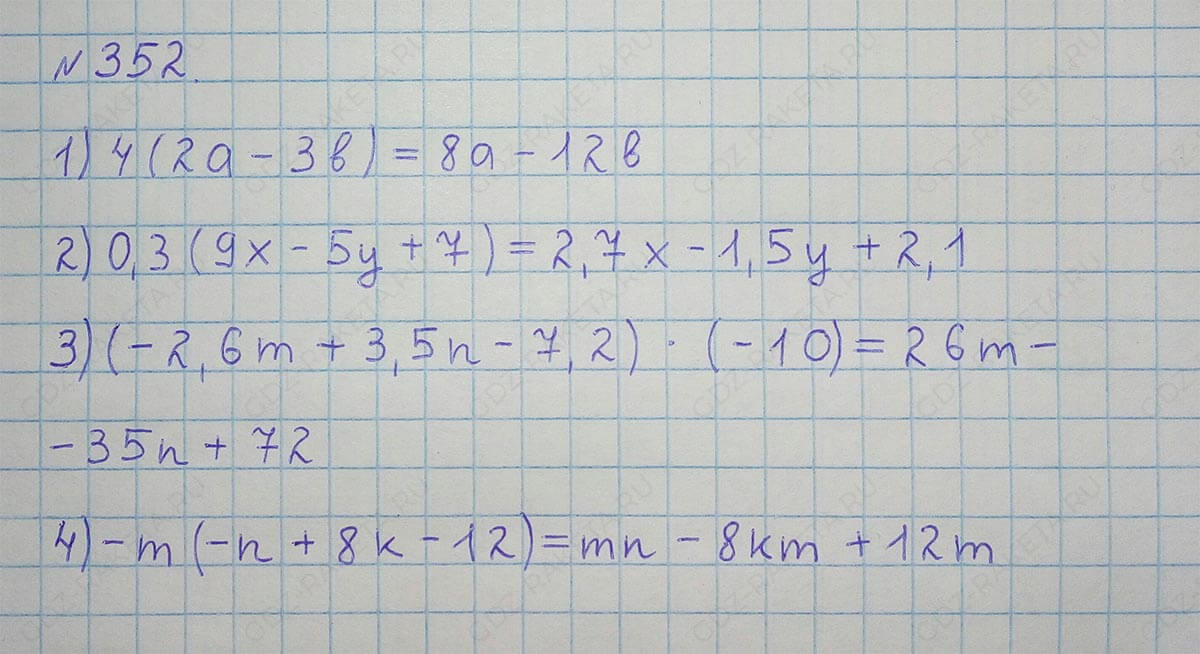 № 352.
1) 4(2a - 3в) = 8a - 12в
2) 0,3(9x - 5y + 7) = 2,7x - 1,5y + 2,1
3) (-2,6m + 3,5n - 7,2) · (-10) = 26m -
-35n + 72
4) -m(-n + 8к - 12) = mn - 8кm + 12m